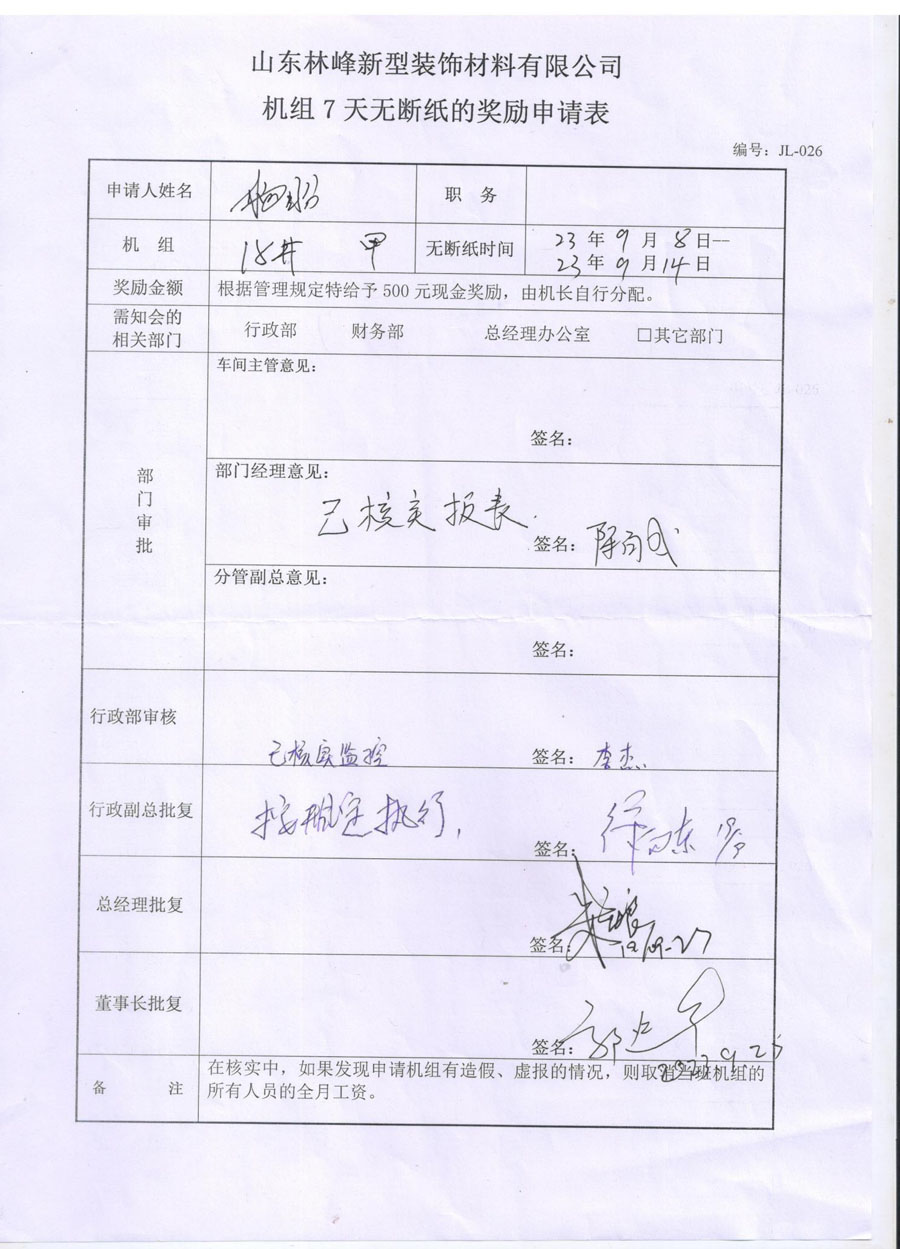 山东林峰新型装饰材料有限公司
机组7天无断纸的奖励申请表
编号：JL-026
申请人姓名
职 务
机 组
甲
无断纸时间
23年9月8日--
23年9月14日
奖励金额
根据管理规定特给予500元现金奖励，由机长自行分配。
需知会的
相关部门
行政部 财务部 总经理办公室 □其它部门
部门审批
车间主管意见：
签名：
部门经理意见：
已核实报表.
签名：
分管副总意见：
签名：
行政部审核
已核实监控
签名：李杰
行政副总批复
按规定执行,
签名：
总经理批复
签名：
董事长批复
签名：
备 注
在核实中，如果发现申请机组有造假、虚报的情况，则取消当班机组的
所有人员的全月工资。